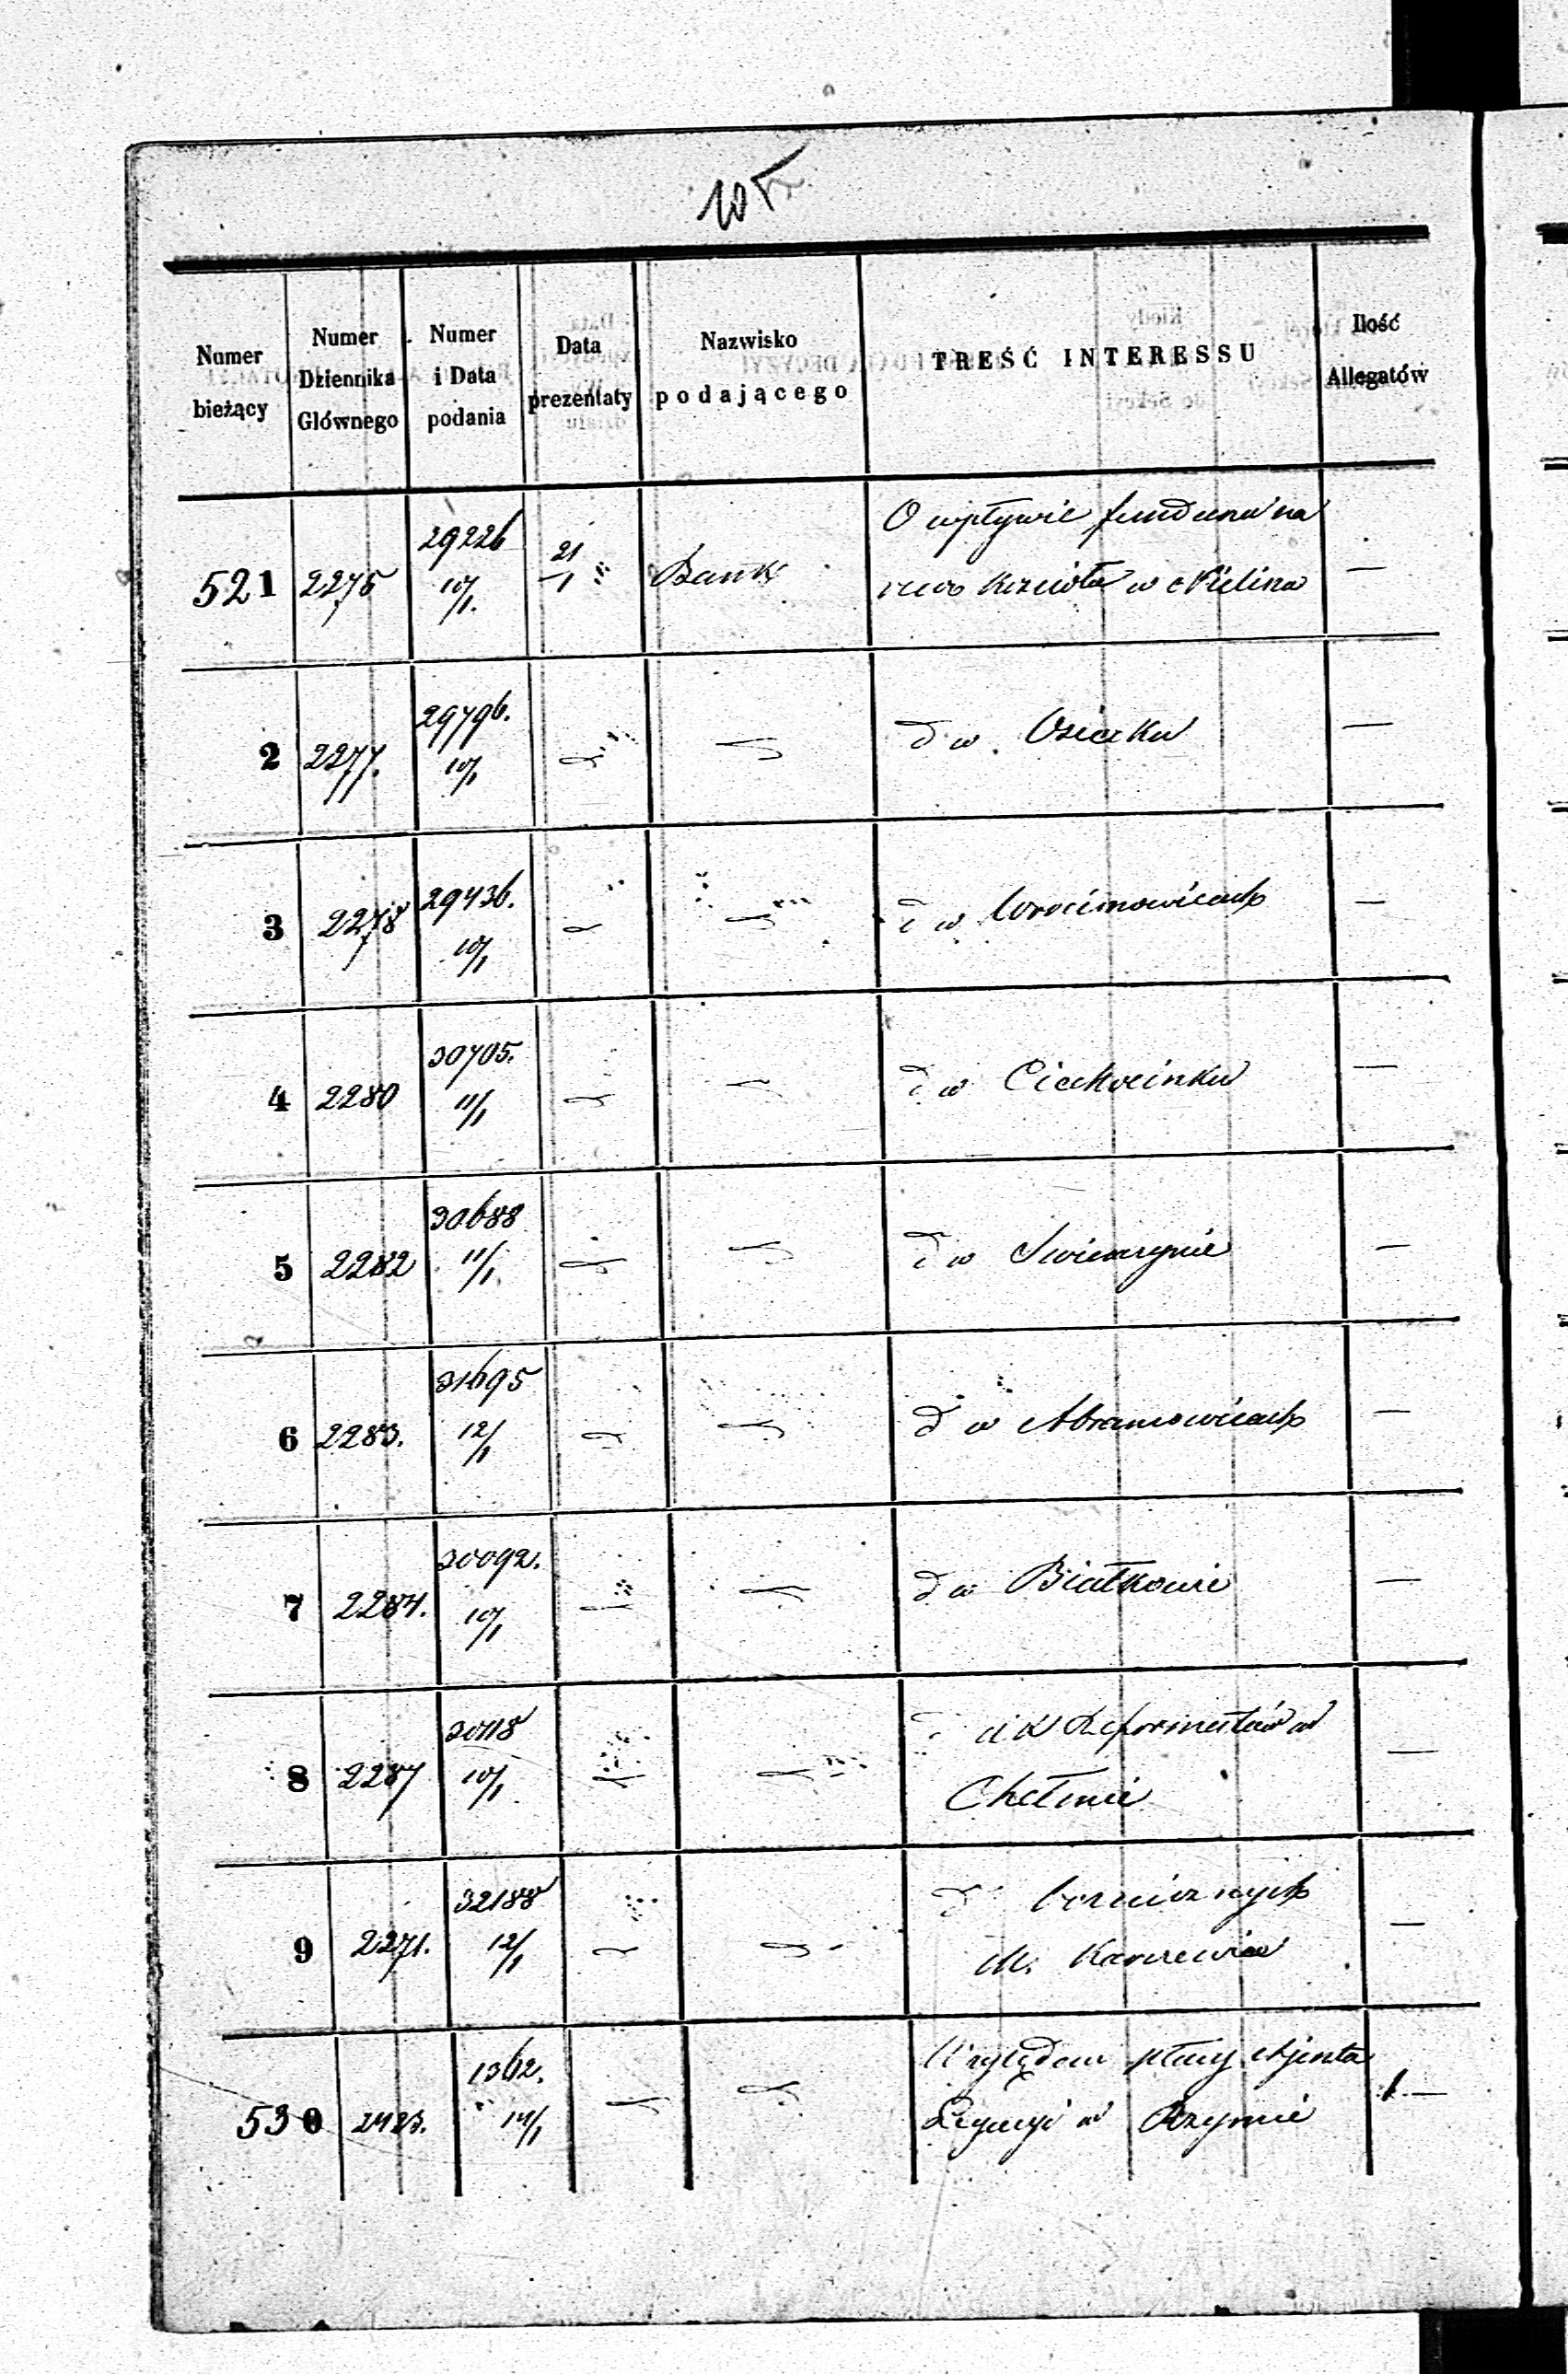 Numer bieżący | Numer Dziennika Głównego | Numer i Data podania | Data prezentaty | Nazwisko podającego | TREŚĆ INTERESSU | Ilość Allegatów
521 | 2275 | 29226 10/1. | 21/1 | Bank | O wpływie funduszu na
rzecz kościoła w | —
2 | 2277. | 29796. 10/1 | d w Osiecku | —
3 | 2278 | 29436. 10/1 | d w Wrocimowicach | —
4 | 2280 | 30705. 11/1 | d w Ciechocinku | —
5 | 2282 | 30688 11/1 | d w | —
6 | 2283. | 31695 12/1 | d w Abramowicach | —
7 | 2284. | 30092. 10/1 | d w Białkowie | —
8 | 2287 | 10/1 | d Reformatów w
Chełmie | —
9 | 2271. | 32188 12/1 | d
M. | —
530 | 2423. | 1362. 14/1 | Względem płacy Ajenta
w Rzymie | 1 —